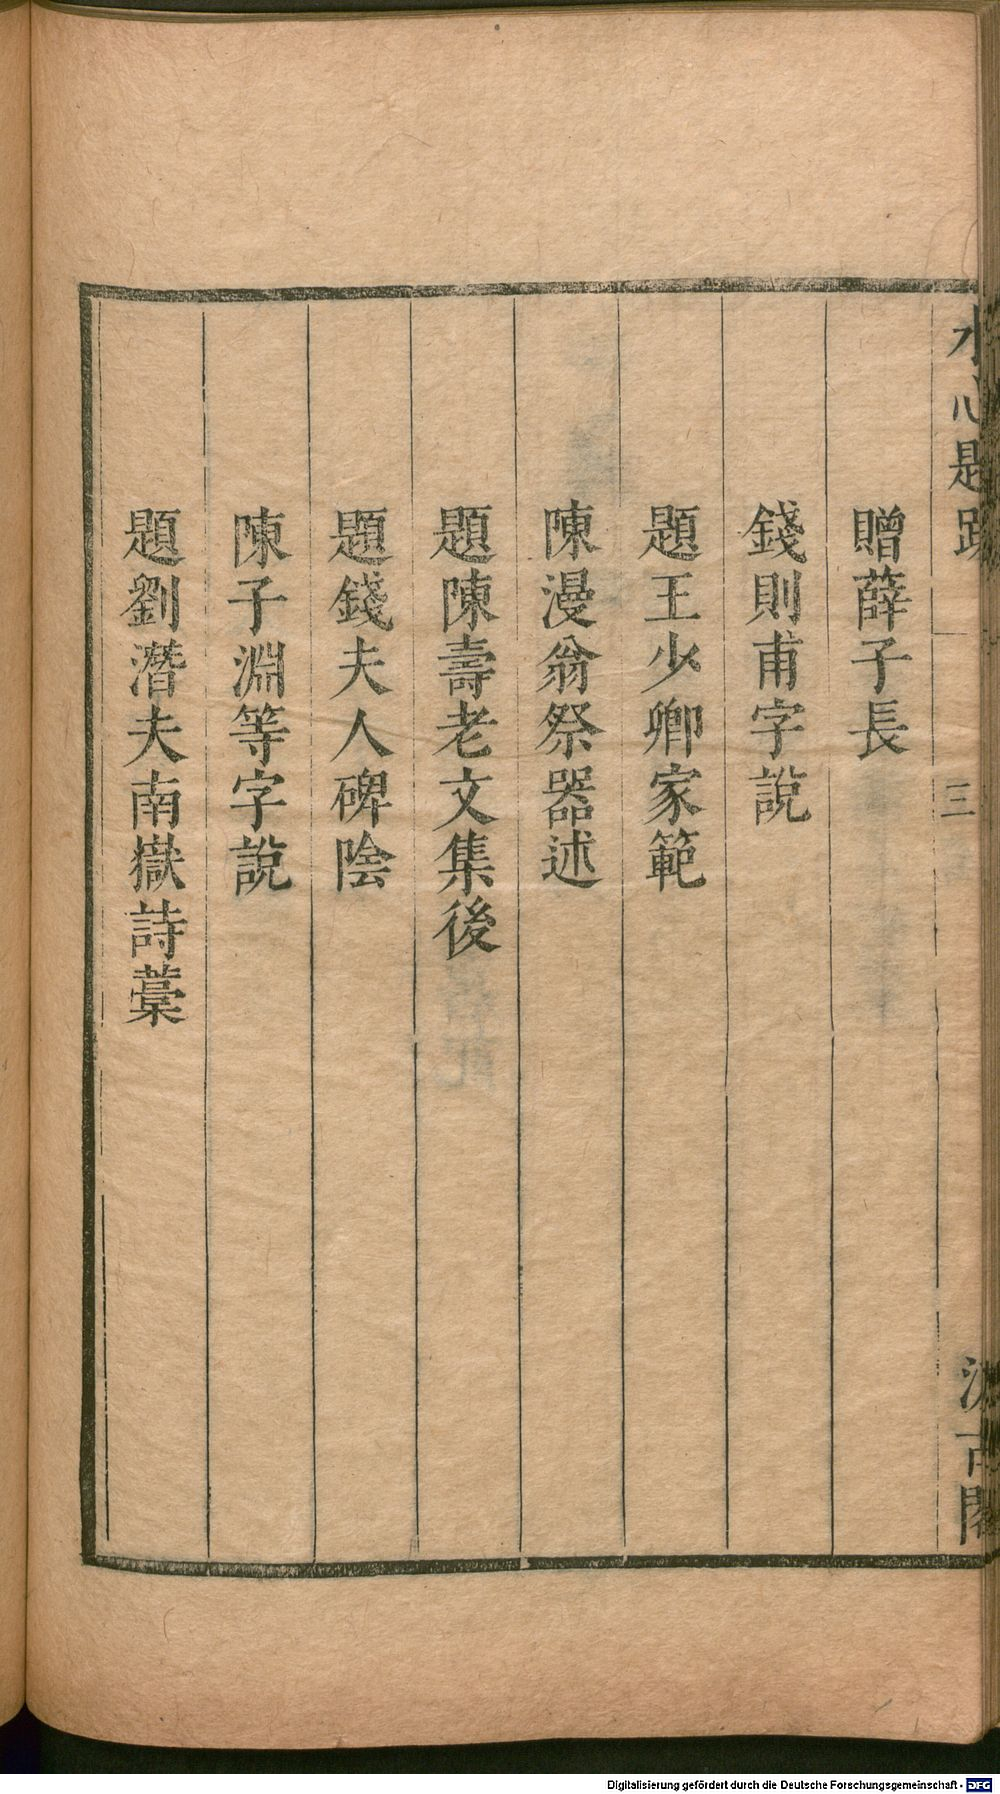 水心題跋
三
汲古閣
贈薛子長
錢則甫字說
題王少卿家範
陳漫翁祭器述
題陳壽老文集後
題錢夫人碑陰
陳子淵等字說
題劉潛夫南嶽詩藁
Digitalisierung gefördert durch die Deutsche Forschungsgemeinschaft - DFG